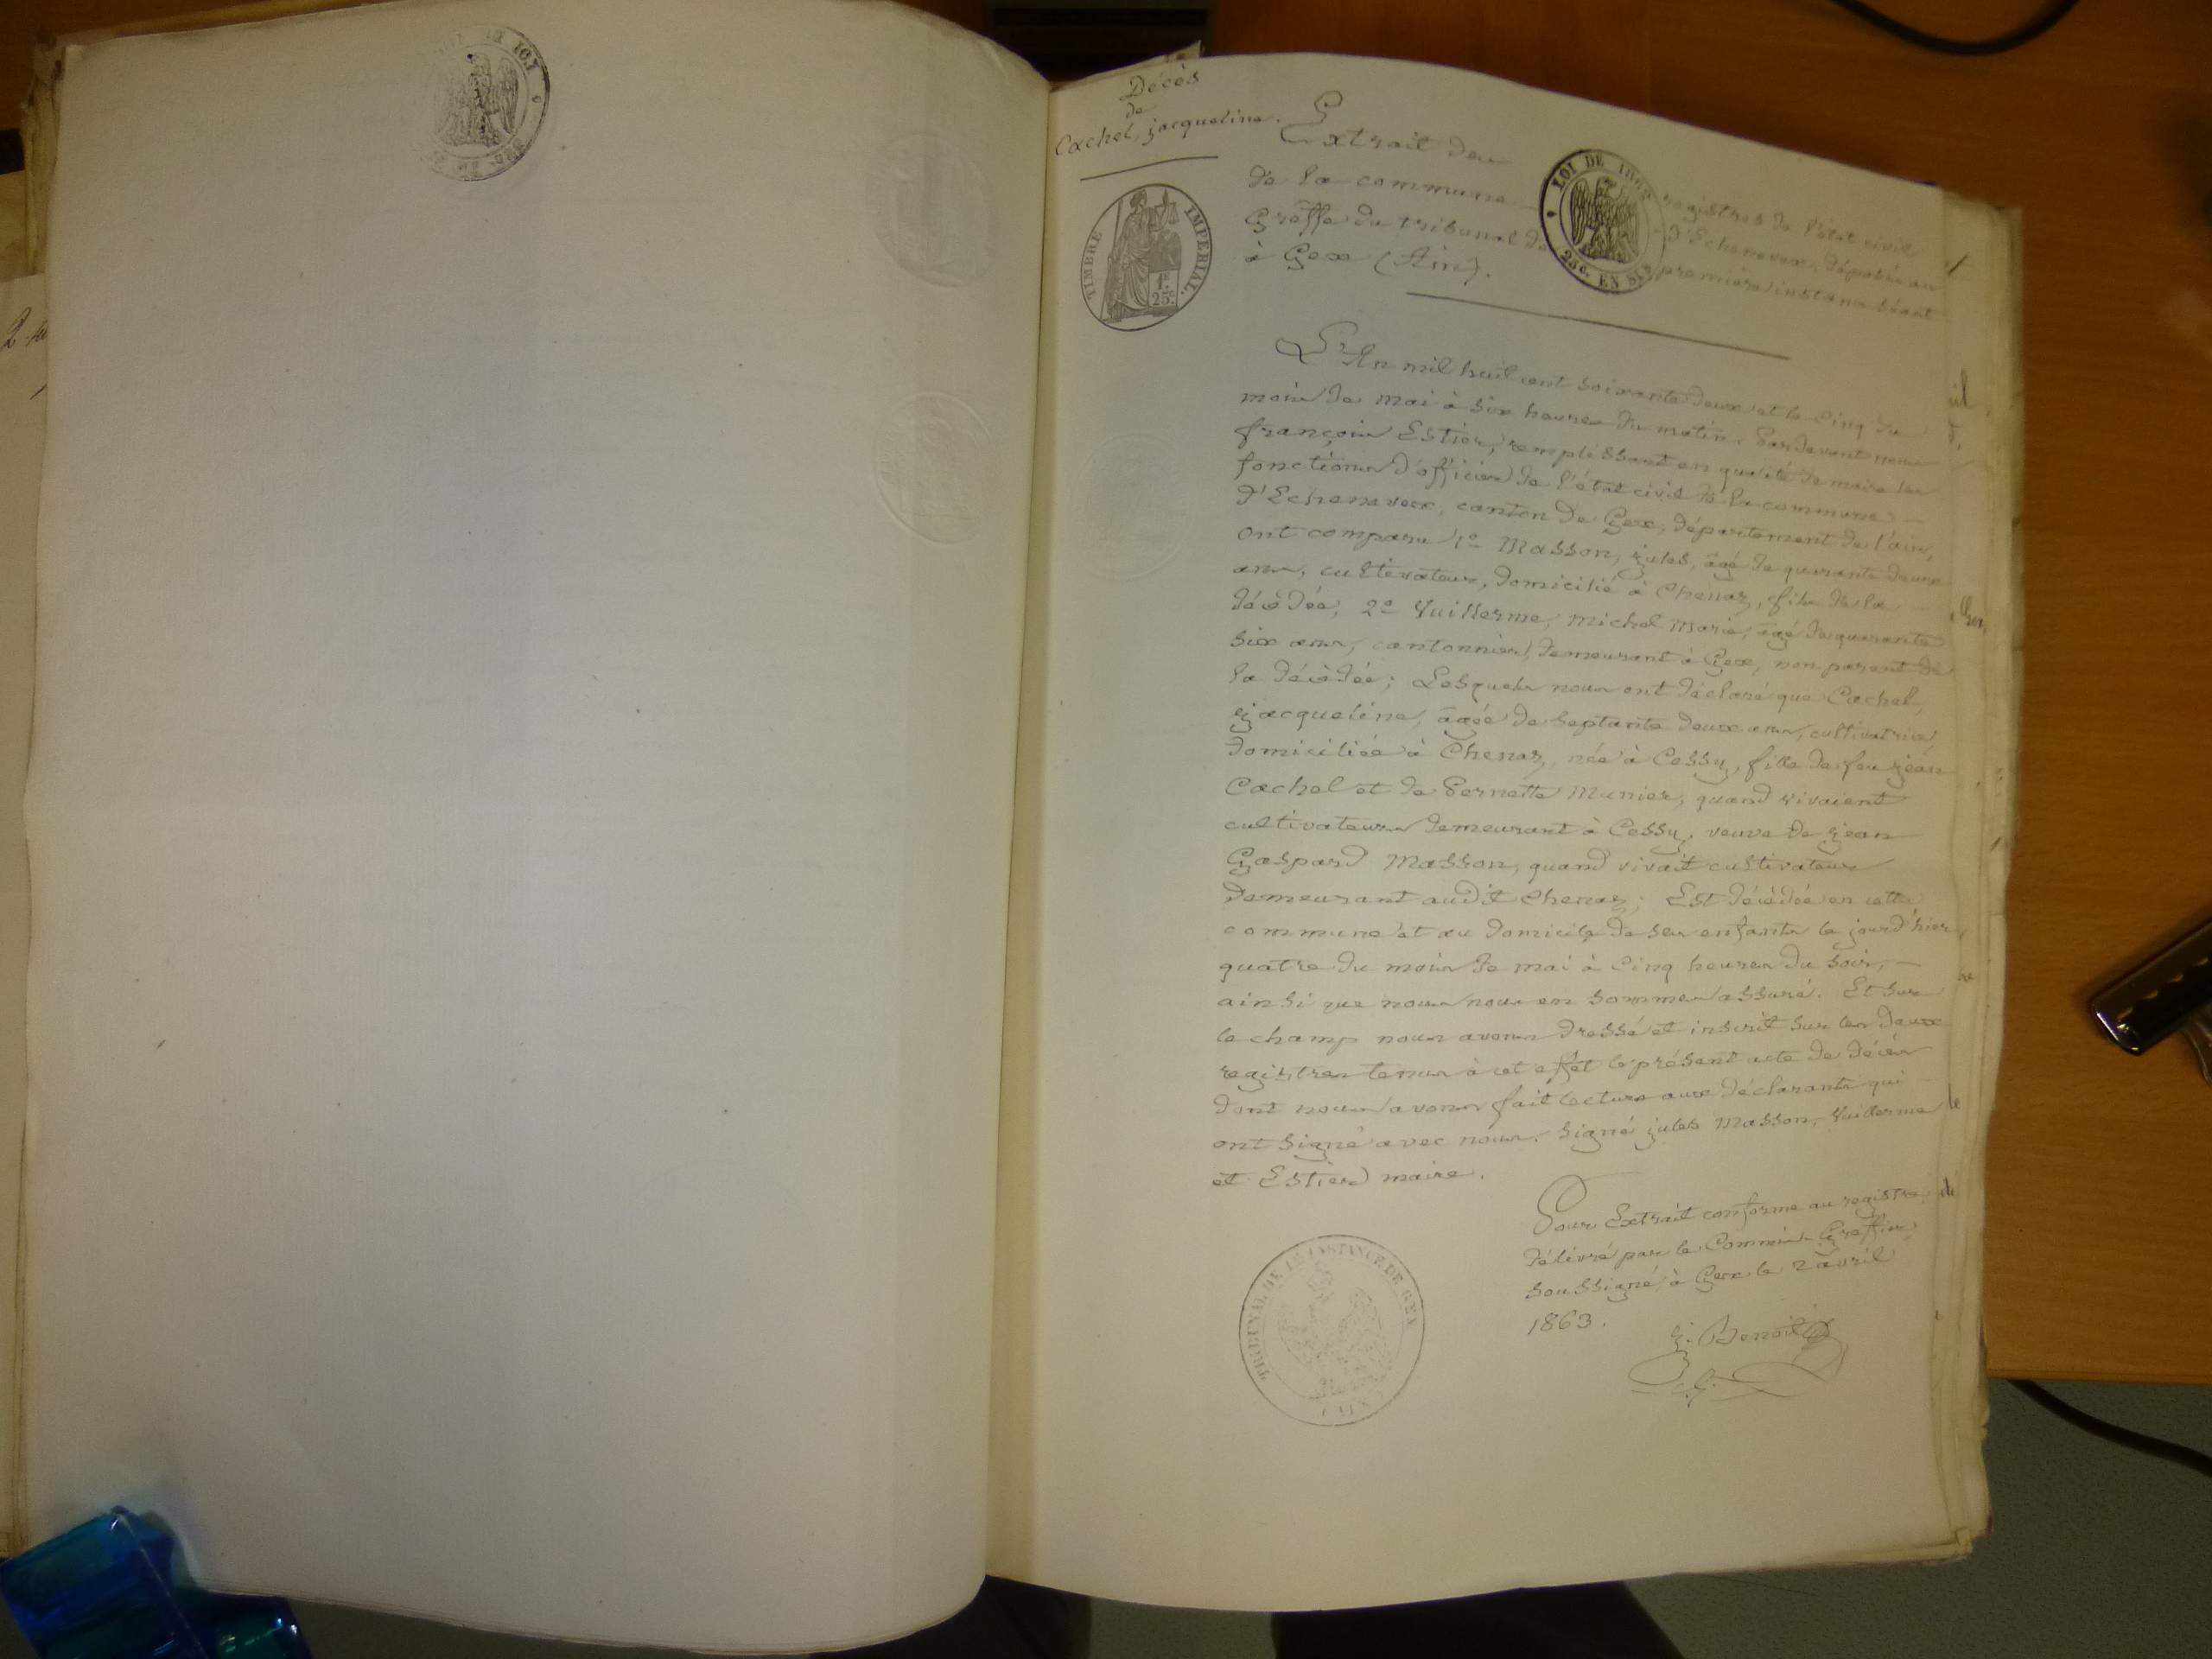 Décès
de
Cachel, jacqueline.
Extrait des registres de l'état civil
de la commune d'Echenevex, déposés au
Greffe du tribunal de première instance séant
à Gex (Ain).
LOI DE
25c. EN SUS
TIMBRE IMPERIAL.
1f.
25c.
L'An mil huit cent soixante deux et le cinq du
mois de mai à six heures du matin. Pardevant nous
françois Estier, remplissant en qualité de maire les
fonctions d'officier de l'état civil de la commune
d'Echenevex, canton de Gex, département de l'ain,
ont comparu 1o Masson, jules, âgé de quarante deux
ans, cultivateur, domicilié à Chenaz, fils de la
décédée, 2o Vuillerme, michel marie, âgé de quarante
six ans, cantonnier, demeurant à Gex, non parent de
la décédée; Lesquels nous ont déclaré que Cachel,
jacqueline, âgée de septante deux ans, cultivatrice
domiciliée à Chenaz, née à Cessy, fille de feu jean
Cachel et de Pernette Munier, quand vivaient
cultivateurs demeurant à Cessy, veuve de jean
Gaspard Masson, quand vivait cultivateur
demeurant audit Chenaz; Est décédée en cette
commune et au domicile de ses enfants le jourd'hier
quatre du mois de mai à cinq heures du soir,
ainsi que nous nous en sommes assuré. Et sur
le champ nous avons dressé et inscrit sur les deux
registres tenus à cet effet le présent acte de décès
dont nous avons fait lecture aux déclarants qui
ont signé avec nous. Signé jules Masson, Vuillerme
et Estier maire.
Pour Extrait conforme au registre
délivré par le Commis Greffier
soussigné, à Gex le 2 avril
1863.
j. Benoit
TRIBUNAL DE 1RE INSTANCE DE GEX
(AIN)